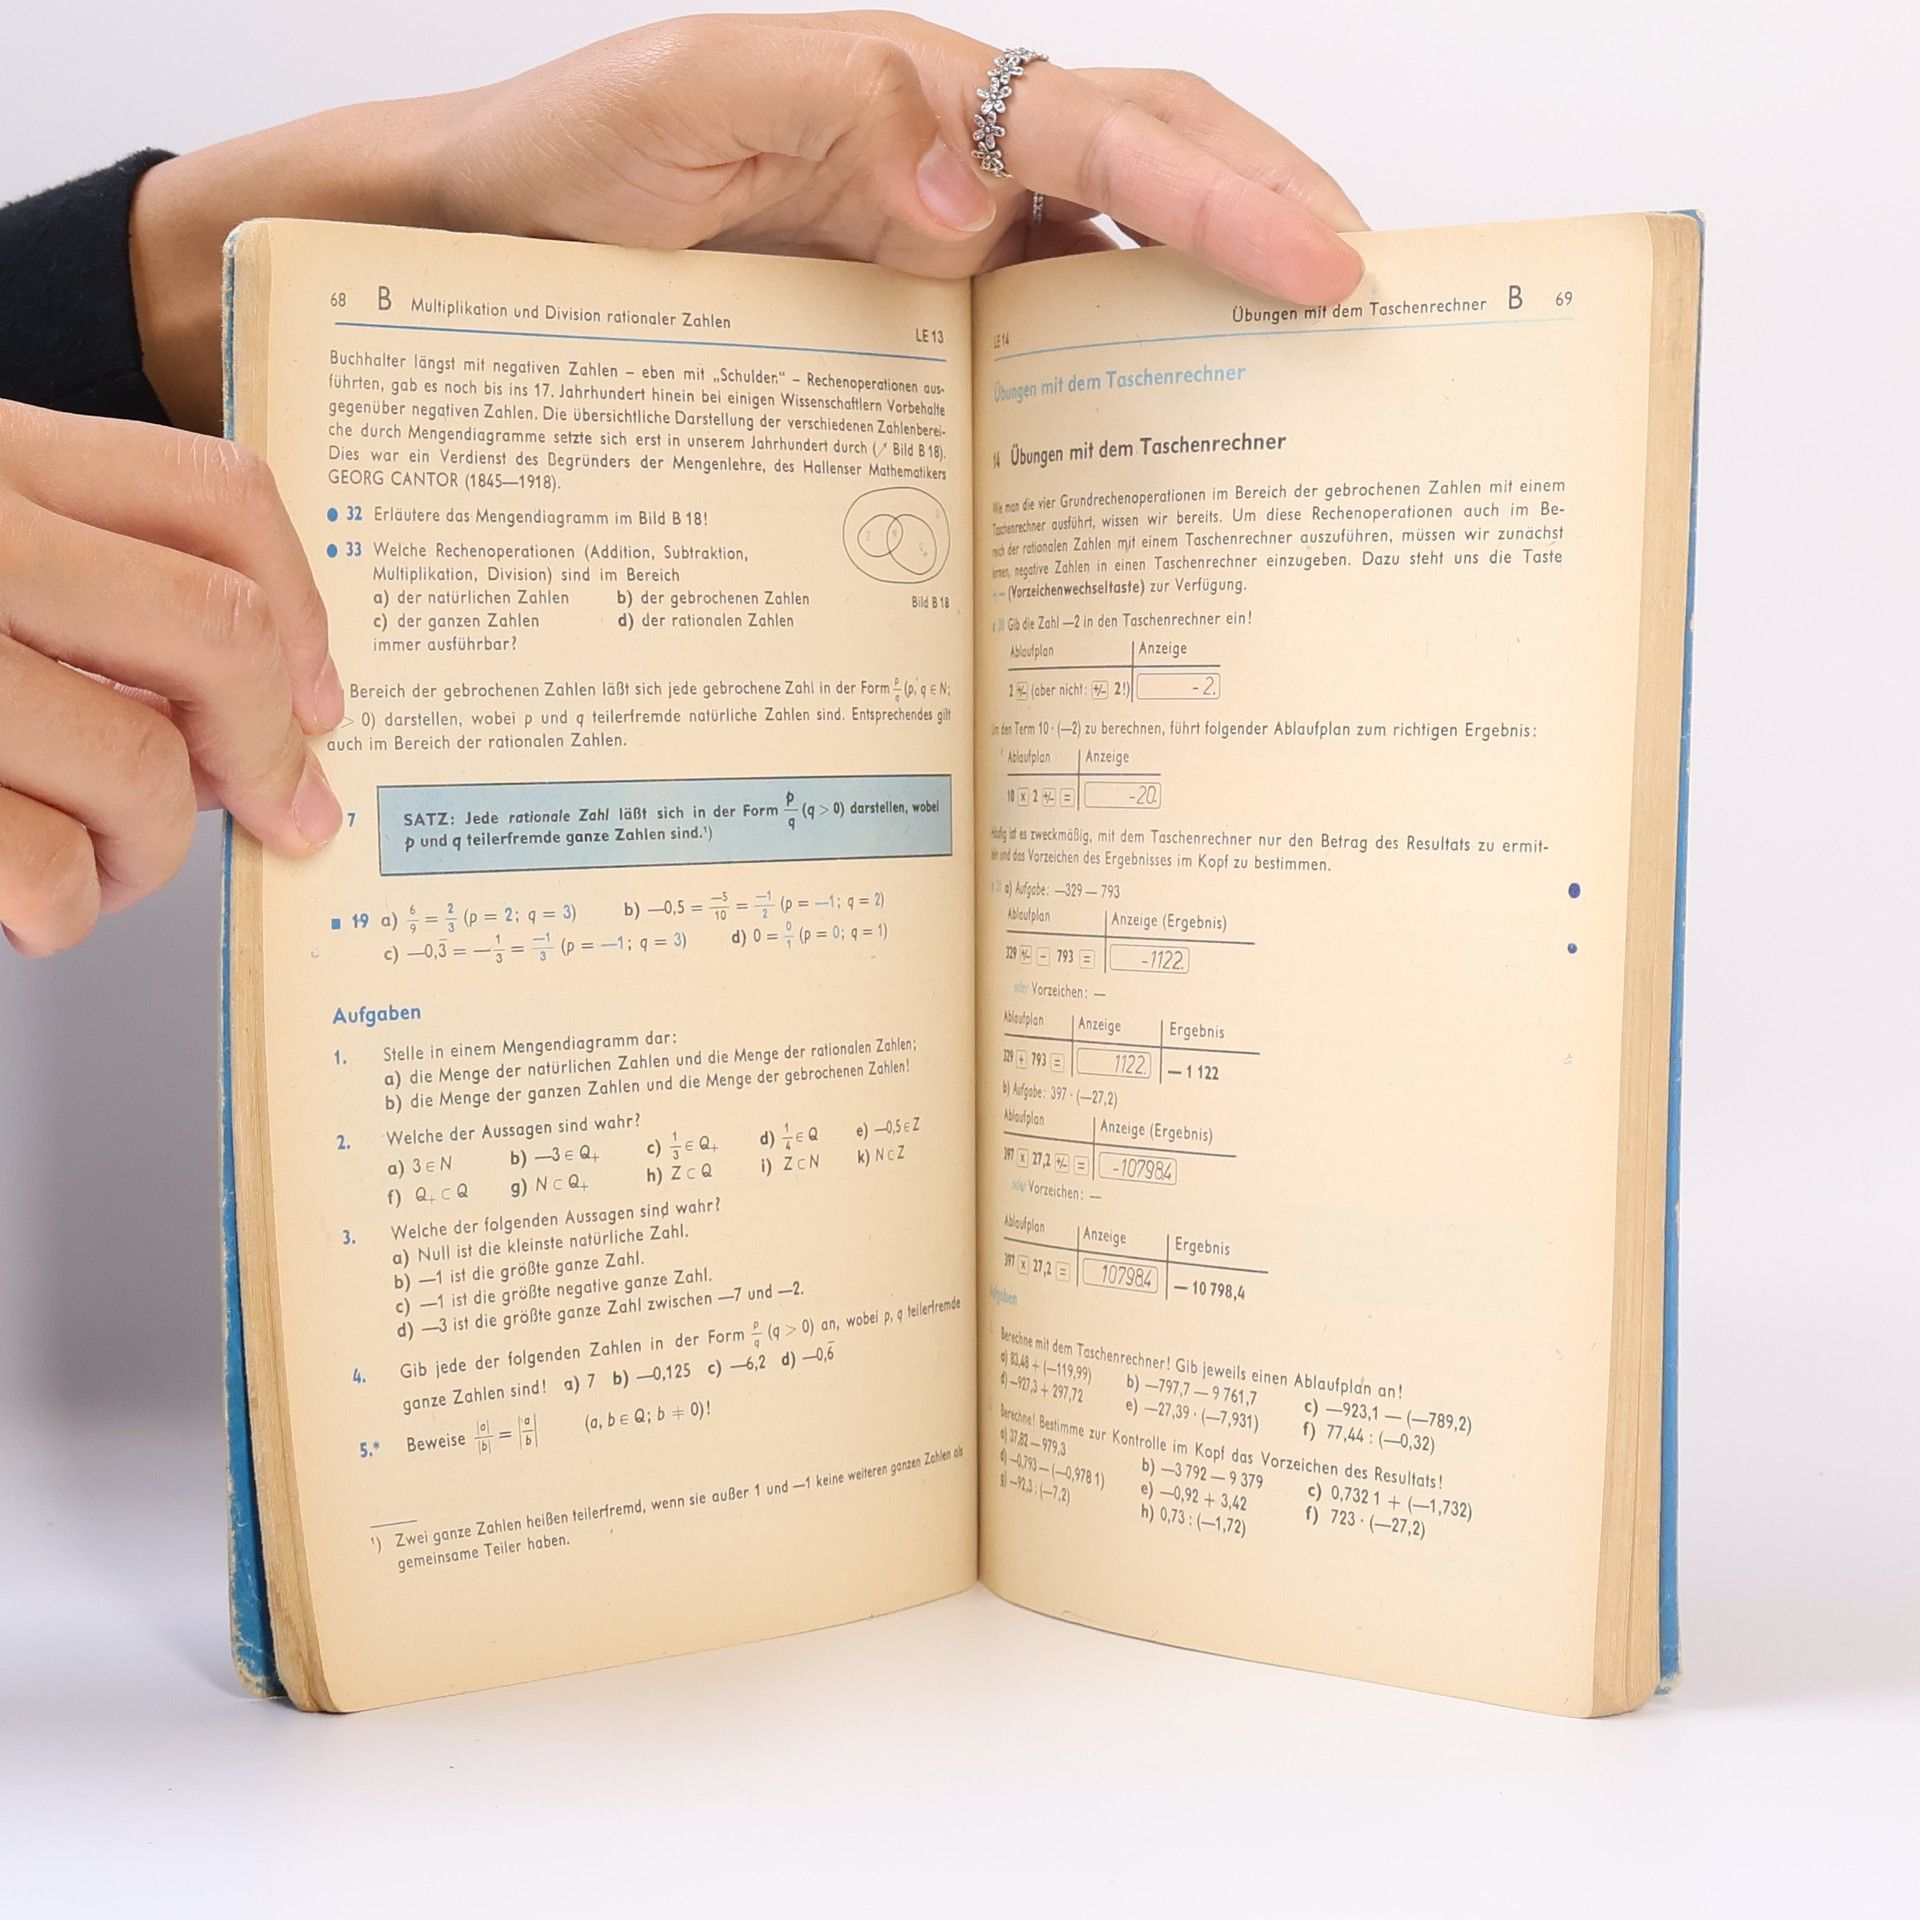 68 B Multiplikation und Division rationaler Zahlen
LE 13
Buchhalter längst mit negativen Zahlen – eben mit „Schulden“ – Rechenoperationen aus-
führten, gab es noch bis ins 17. Jahrhundert hinein bei einigen Wissenschaftlern Vorbehalte
gegenüber negativen Zahlen. Die übersichtliche Darstellung der verschiedenen Zahlenberei-
che durch Mengendiagramme setzte sich erst in unserem Jahrhundert durch (↗ Bild B 18).
Dies war ein Verdienst des Begründers der Mengenlehre, des Hallenser Mathematikers
GEORG CANTOR (1845—1918).
● 32 Erläutere das Mengendiagramm im Bild B 18!
● 33 Welche Rechenoperationen (Addition, Subtraktion,
Multiplikation, Division) sind im Bereich
a) der natürlichen Zahlen b) der gebrochenen Zahlen
c) der ganzen Zahlen d) der rationalen Zahlen
immer ausführbar?
Bild B 18
Bereich der gebrochenen Zahlen läßt sich jede gebrochene Zahl in der Form p/q (p, q ∈ N;
> 0) darstellen, wobei p und q teilerfremde natürliche Zahlen sind. Entsprechendes gilt
auch im Bereich der rationalen Zahlen.
7 SATZ: Jede rationale Zahl läßt sich in der Form p/q (q > 0) darstellen, wobei
p und q teilerfremde ganze Zahlen sind.¹)
■ 19 a) 6/9 = 2/3 (p = 2; q = 3) b) —0,5 = —5/10 = —1/2 (p = —1; q = 2)
c) —0,3̅ = —1/3 = —1/3 (p = —1; q = 3) d) 0 = 0/1 (p = 0; q = 1)
Aufgaben
1. Stelle in einem Mengendiagramm dar:
a) die Menge der natürlichen Zahlen und die Menge der rationalen Zahlen;
b) die Menge der ganzen Zahlen und die Menge der gebrochenen Zahlen!
2. Welche der Aussagen sind wahr?
a) 3 ∈ N b) —3 ∈ Q₊ c) 1/3 ∈ Q₊ d) 1/4 ∈ Q e) —0,5 ∈ Z
f) Q₊ ⊂ Q g) N ⊂ Q₊ h) Z ⊂ Q i) Z ⊂ N k) N ⊂ Z
3. Welche der folgenden Aussagen sind wahr?
a) Null ist die kleinste natürliche Zahl.
b) —1 ist die größte ganze Zahl.
c) —1 ist die größte negative ganze Zahl.
d) —3 ist die größte ganze Zahl zwischen —7 und —2.
4. Gib jede der folgenden Zahlen in der Form p/q (q > 0) an, wobei p, q teilerfremde
ganze Zahlen sind! a) 7 b) —0,125 c) —6,2 d) —0,6̅
5.* Beweise |a|/|b| = |a/b| (a, b ∈ Q; b ≠ 0)!
¹) Zwei ganze Zahlen heißen teilerfremd, wenn sie außer 1 und —1 keine weiteren ganzen Zahlen als
gemeinsame Teiler haben.
Übungen mit dem Taschenrechner B 69
LE 14
Übungen mit dem Taschenrechner
14 Übungen mit dem Taschenrechner
Wie man die vier Grundrechenoperationen im Bereich der gebrochenen Zahlen mit einem
Taschenrechner ausführt, wissen wir bereits. Um diese Rechenoperationen auch im Be-
reich der rationalen Zahlen mit einem Taschenrechner auszuführen, müssen wir zunächst
lernen, negative Zahlen in einen Taschenrechner einzugeben. Dazu steht uns die Taste
(Vorzeichenwechseltaste) zur Verfügung.
Gib die Zahl —2 in den Taschenrechner ein!
Ablaufplan Anzeige
2 +/- (aber nicht: +/- 2!) -2.
Um den Term 10 · (—2) zu berechnen, führt folgender Ablaufplan zum richtigen Ergebnis:
Ablaufplan Anzeige
10 × 2 +/- = -20.
Häufig ist es zweckmäßig, mit dem Taschenrechner nur den Betrag des Resultats zu ermit-
teln und das Vorzeichen des Ergebnisses im Kopf zu bestimmen.
a) Aufgabe: —329 — 793
Ablaufplan Anzeige (Ergebnis)
329 +/- - 793 = -1122.
oder Vorzeichen: —
Ablaufplan Anzeige Ergebnis
329 + 793 = 1122. — 1 122
b) Aufgabe: 397 · (—27,2)
Ablaufplan Anzeige (Ergebnis)
397 × 27,2 +/- = -10798.4
oder Vorzeichen: —
Ablaufplan Anzeige Ergebnis
397 × 27,2 = 10798.4 — 10 798,4
Aufgaben
Berechne mit dem Taschenrechner! Gib jeweils einen Ablaufplan an!
a) 83,48 + (—119,99) b) —797,7 — 9 761,7 c) —923,1 — (—789,2)
d) —927,3 + 297,72 e) —27,39 · (—7,931) f) 77,44 : (—0,32)
Berechne! Bestimme zur Kontrolle im Kopf das Vorzeichen des Resultats!
a) 37,82 — 979,3 b) —3 792 — 9 379 c) 0,732 1 + (—1,732)
d) —0,793 — (—0,978 1) e) —0,92 + 3,42 f) 723 · (—27,2)
g) —92,3 : (—7,2) h) 0,73 : (—1,72)